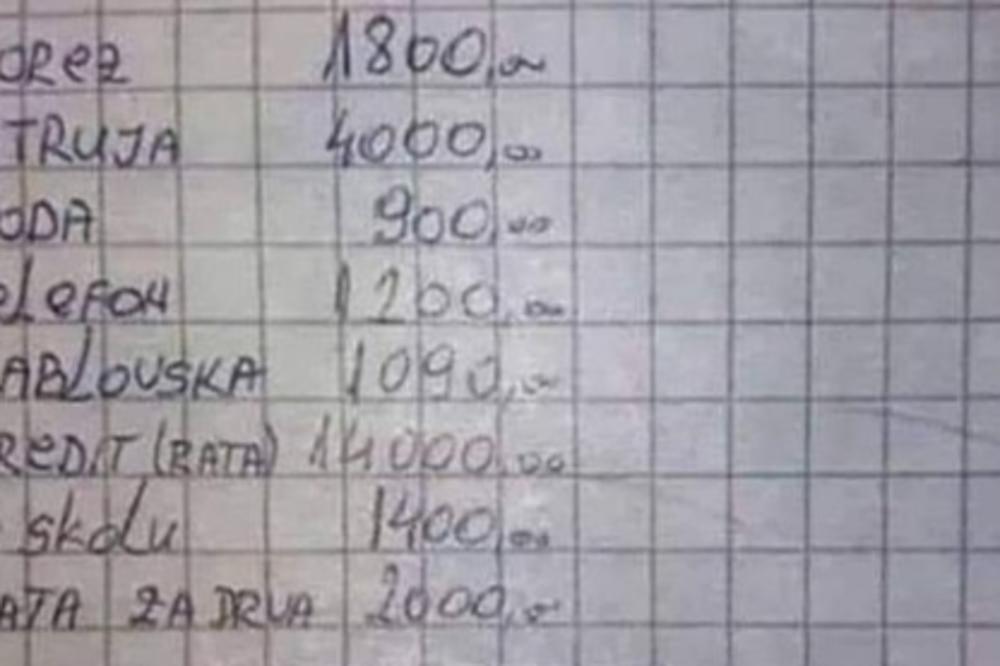 OREZ 1800,00
TRUJA 4000,00
ODA 900,00
ELEFON 1200,00
ABLOVSKA 1090,00
REDIT (RATA) 14000,00
skolu 1400,00
ATA ZA DRVA 2000,00